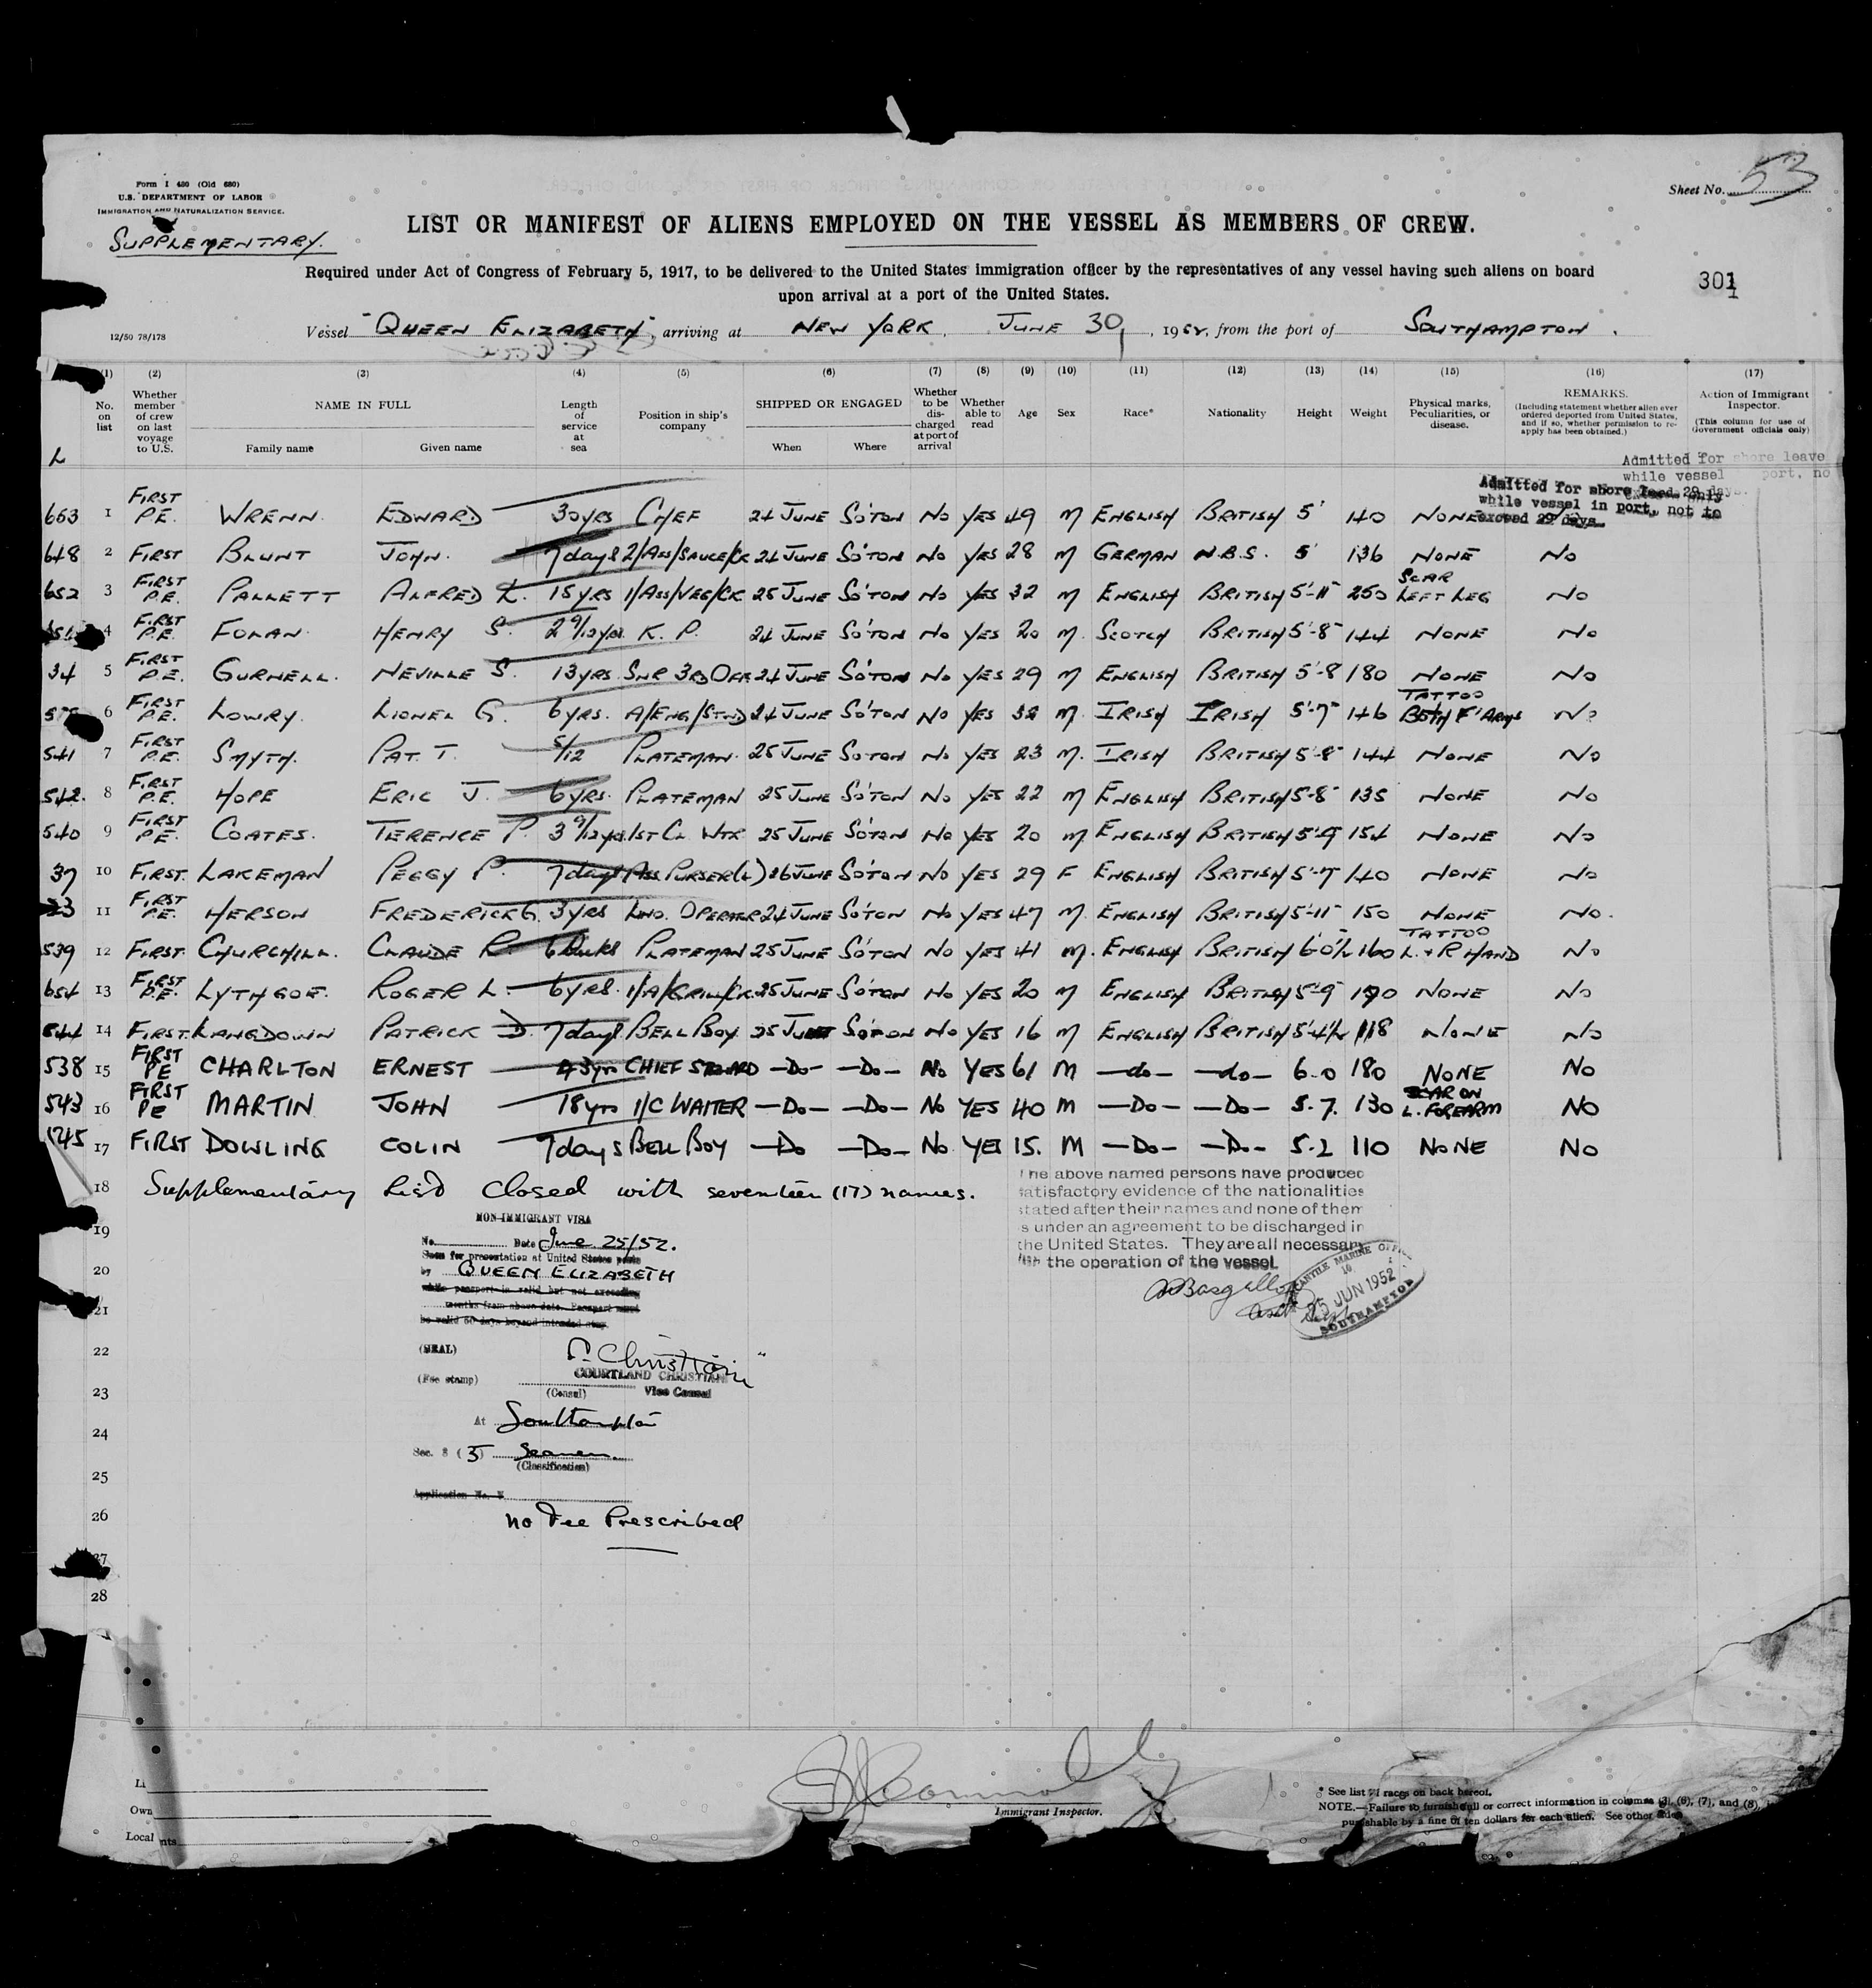 Form I 480 (Old 680)
U.S. DEPARTMENT OF LABOR
IMMIGRATION AND NATURALIZATION SERVICE.
SUPPLEMENTARY.
Sheet No. 53
LIST OR MANIFEST OF ALIENS EMPLOYED ON THE VESSEL AS MEMBERS OF CREW.
Required under Act of Congress of February 5, 1917, to be delivered to the United States immigration officer by the representatives of any vessel having such aliens on board
upon arrival at a port of the United States.
301
12/50 78/178
Vessel "QUEEN ELIZABETH", arriving at NEW YORK, JUNE 30, 1952, from the port of SOUTHAMPTON.
(1) (2) (3) (4) (5) (6) (7) (8) (9) (10) (11) (12) (13) (14) (15) (16) (17)
No. on list
Whether member of crew on last voyage to U.S.
NAME IN FULL
Family name Given name
Length of service at sea
Position in ship's company
SHIPPED OR ENGAGED
When Where
Whether to be discharged at port of arrival
Whether able to read
Age Sex Race* Nationality Height Weight
Physical marks, Peculiarities, or disease.
REMARKS.
(Including statement whether alien ever ordered deported from United States, and if so, whether permission to re-apply has been obtained.)
Action of Immigrant Inspector.
(This column for use of Government officials only)
Admitted for shore leave
while vessel port, no
Admitted for shore
while vessel in port, not to
exceed 29 days.
663 1 FIRST P.E. WRENN. EDWARD 30 YRS CHEF 24 JUNE SO'TON NO YES 49 M ENGLISH BRITISH 5' 140 NONE
648 2 FIRST BLUNT JOHN. 7 days 2/ASS/SAUCE/CK 24 JUNE SO'TON NO YES 28 M GERMAN N.B.S. 5' 136 NONE NO
652 3 FIRST P.E. PALLETT ALFRED L. 15 YRS 1/ASS/VEG/CK 25 JUNE SO'TON NO YES 32 M ENGLISH BRITISH 5'-11" 250 SCAR LEFT LEG NO
4 FIRST P.E. FOLAN. HENRY S. 2 9/12 yrs. K. P. 24 JUNE SO'TON NO YES 20 M. SCOTCH BRITISH 5'-8" 144 NONE NO
34 5 FIRST P.E. GURNELL. NEVILLE S. 13 YRS. SNR 3RD OFF 24 JUNE SO'TON NO YES 29 M ENGLISH BRITISH 5'-8 180 NONE NO
6 FIRST P.E. LOWRY. LIONEL G. 6 YRS. A/ENG/STWD 24 JUNE SO'TON NO YES 32 M. IRISH IRISH 5'-7" 146 TATTOO BOTH F'ARMS NO
541 7 FIRST P.E. SMYTH. PAT. T. 5/12 PLATEMAN. 25 JUNE SO'TON NO YES 23 M. IRISH BRITISH 5'-8" 144 NONE NO
542. 8 FIRST P.E. HOPE ERIC J. 6 YRS. PLATEMAN 25 JUNE SO'TON NO YES 22 M ENGLISH BRITISH 5'-8" 135 NONE NO
540 9 FIRST P.E. COATES. TERENCE P. 3 9/12 yrs. 1ST CL WTR 25 JUNE SO'TON NO YES 20 M ENGLISH BRITISH 5'-9 154 NONE NO
37 10 FIRST. LAKEMAN PEGGY P. 7 days ASS PURSER(L) 26 JUNE SO'TON NO YES 29 F ENGLISH BRITISH 5'-7 140 NONE NO
23 11 FIRST P.E. HERSON FREDERICK G. 3 YRS LNO. OPERATER 24 JUNE SO'TON NO YES 47 M. ENGLISH BRITISH 5'-11" 150 NONE NO.
539 12 FIRST. CHURCHILL. CLAUDE R. PLATEMAN 25 JUNE SO'TON NO YES 41 M. ENGLISH BRITISH 6'0½ 160 TATTOO L. & R HAND NO
654 13 FIRST P.E. LYTHGOE. ROGER L. 6 YRS. 1/A/GRILL/CK. 25 JUNE SO'TON NO YES 20 M ENGLISH BRITISH 5'-9" 190 NONE NO
544 14 FIRST. LANGDOWN PATRICK D. 7 days BELL BOY. 25 JUNE SO'TON NO YES 16 M ENGLISH BRITISH 5'4½ 118 NONE NO
538 15 FIRST PE CHARLTON ERNEST 43 yrs CHIEF STEWARD —DO— —DO— NO YES 61 M —do— —do— 6.0 180 NONE NO
543 16 FIRST PE MARTIN JOHN 18 yrs 1/C WAITER —DO— —DO— NO YES 40 M —DO— —DO— 5.7. 130 SCAR ON L. FOREARM NO
545 17 FIRST DOWLING COLIN 7 days BELL BOY —DO —DO— NO YES 15. M —DO— —DO— 5.2 110 NONE NO
18 Supplementary List closed with seventeen (17) names.
The above named persons have produced
satisfactory evidence of the nationalities
stated after their names and none of them
is under an agreement to be discharged in
the United States. They are all necessary
for the operation of the vessel.
MERCANTILE MARINE OFFICE
25 JUN 1952
SOUTHAMPTON
19
NON-IMMIGRANT VISA
No. Date June 25/52.
Seen for presentation at United States ports
20
by QUEEN ELIZABETH
while passport is valid but not exceeding
21
months from above date. Passport must
be valid 60 days beyond intended stay.
22
(SEAL) C. Christian
(Fee stamp) COURTLAND CHRISTIAN
23
(Consul) Vice Consul
At Southampton
24
Sec. 3 (5) Seamen
(Classification)
25
Application No. V
26
no Fee Prescribed
27
28
Immigrant Inspector.
Own
Local nts
* See list of races on back hereof.
NOTE.—Failure to furnish full or correct information in columns (3), (6), (7), and (8),
punishable by a fine of ten dollars for each alien. See other side